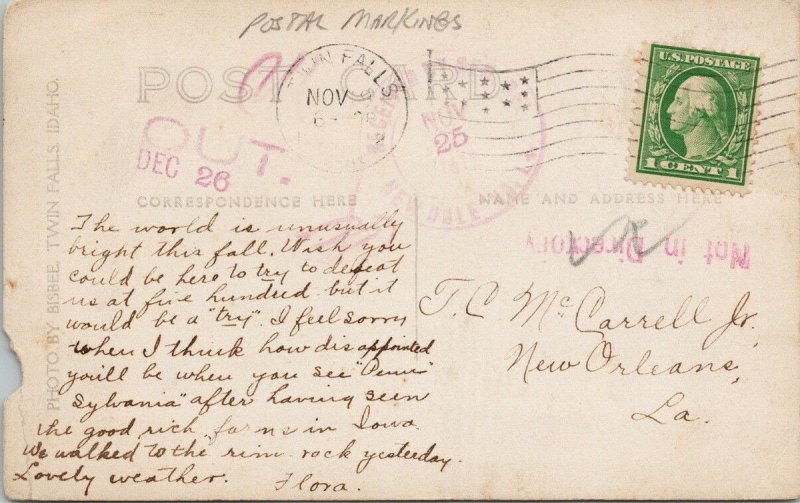 POSTAL MARKINGS
POST CARD
TWIN FALLS
NOV
U.S. POSTAGE
1 CENT 1
NOV
25
OUT.
DEC 26
CORRESPONDENCE HERE
NAME AND ADDRESS HERE
Not in Directory
PHOTO BY BISBEE, TWIN FALLS, IDAHO.
The world is unusually
bright this fall. Wish you
could be here to try to defeat
us at five hundred but it
would be a "try". I feel sorry
when I think how disappointed
you'll be when you see "Penn
Sylvania" after having seen
the good rich farms in Iowa
We walked to the rim rock yesterday.
Lovely weather. Flora.
T. C. McCarrell Jr.
New Orleans,
La.